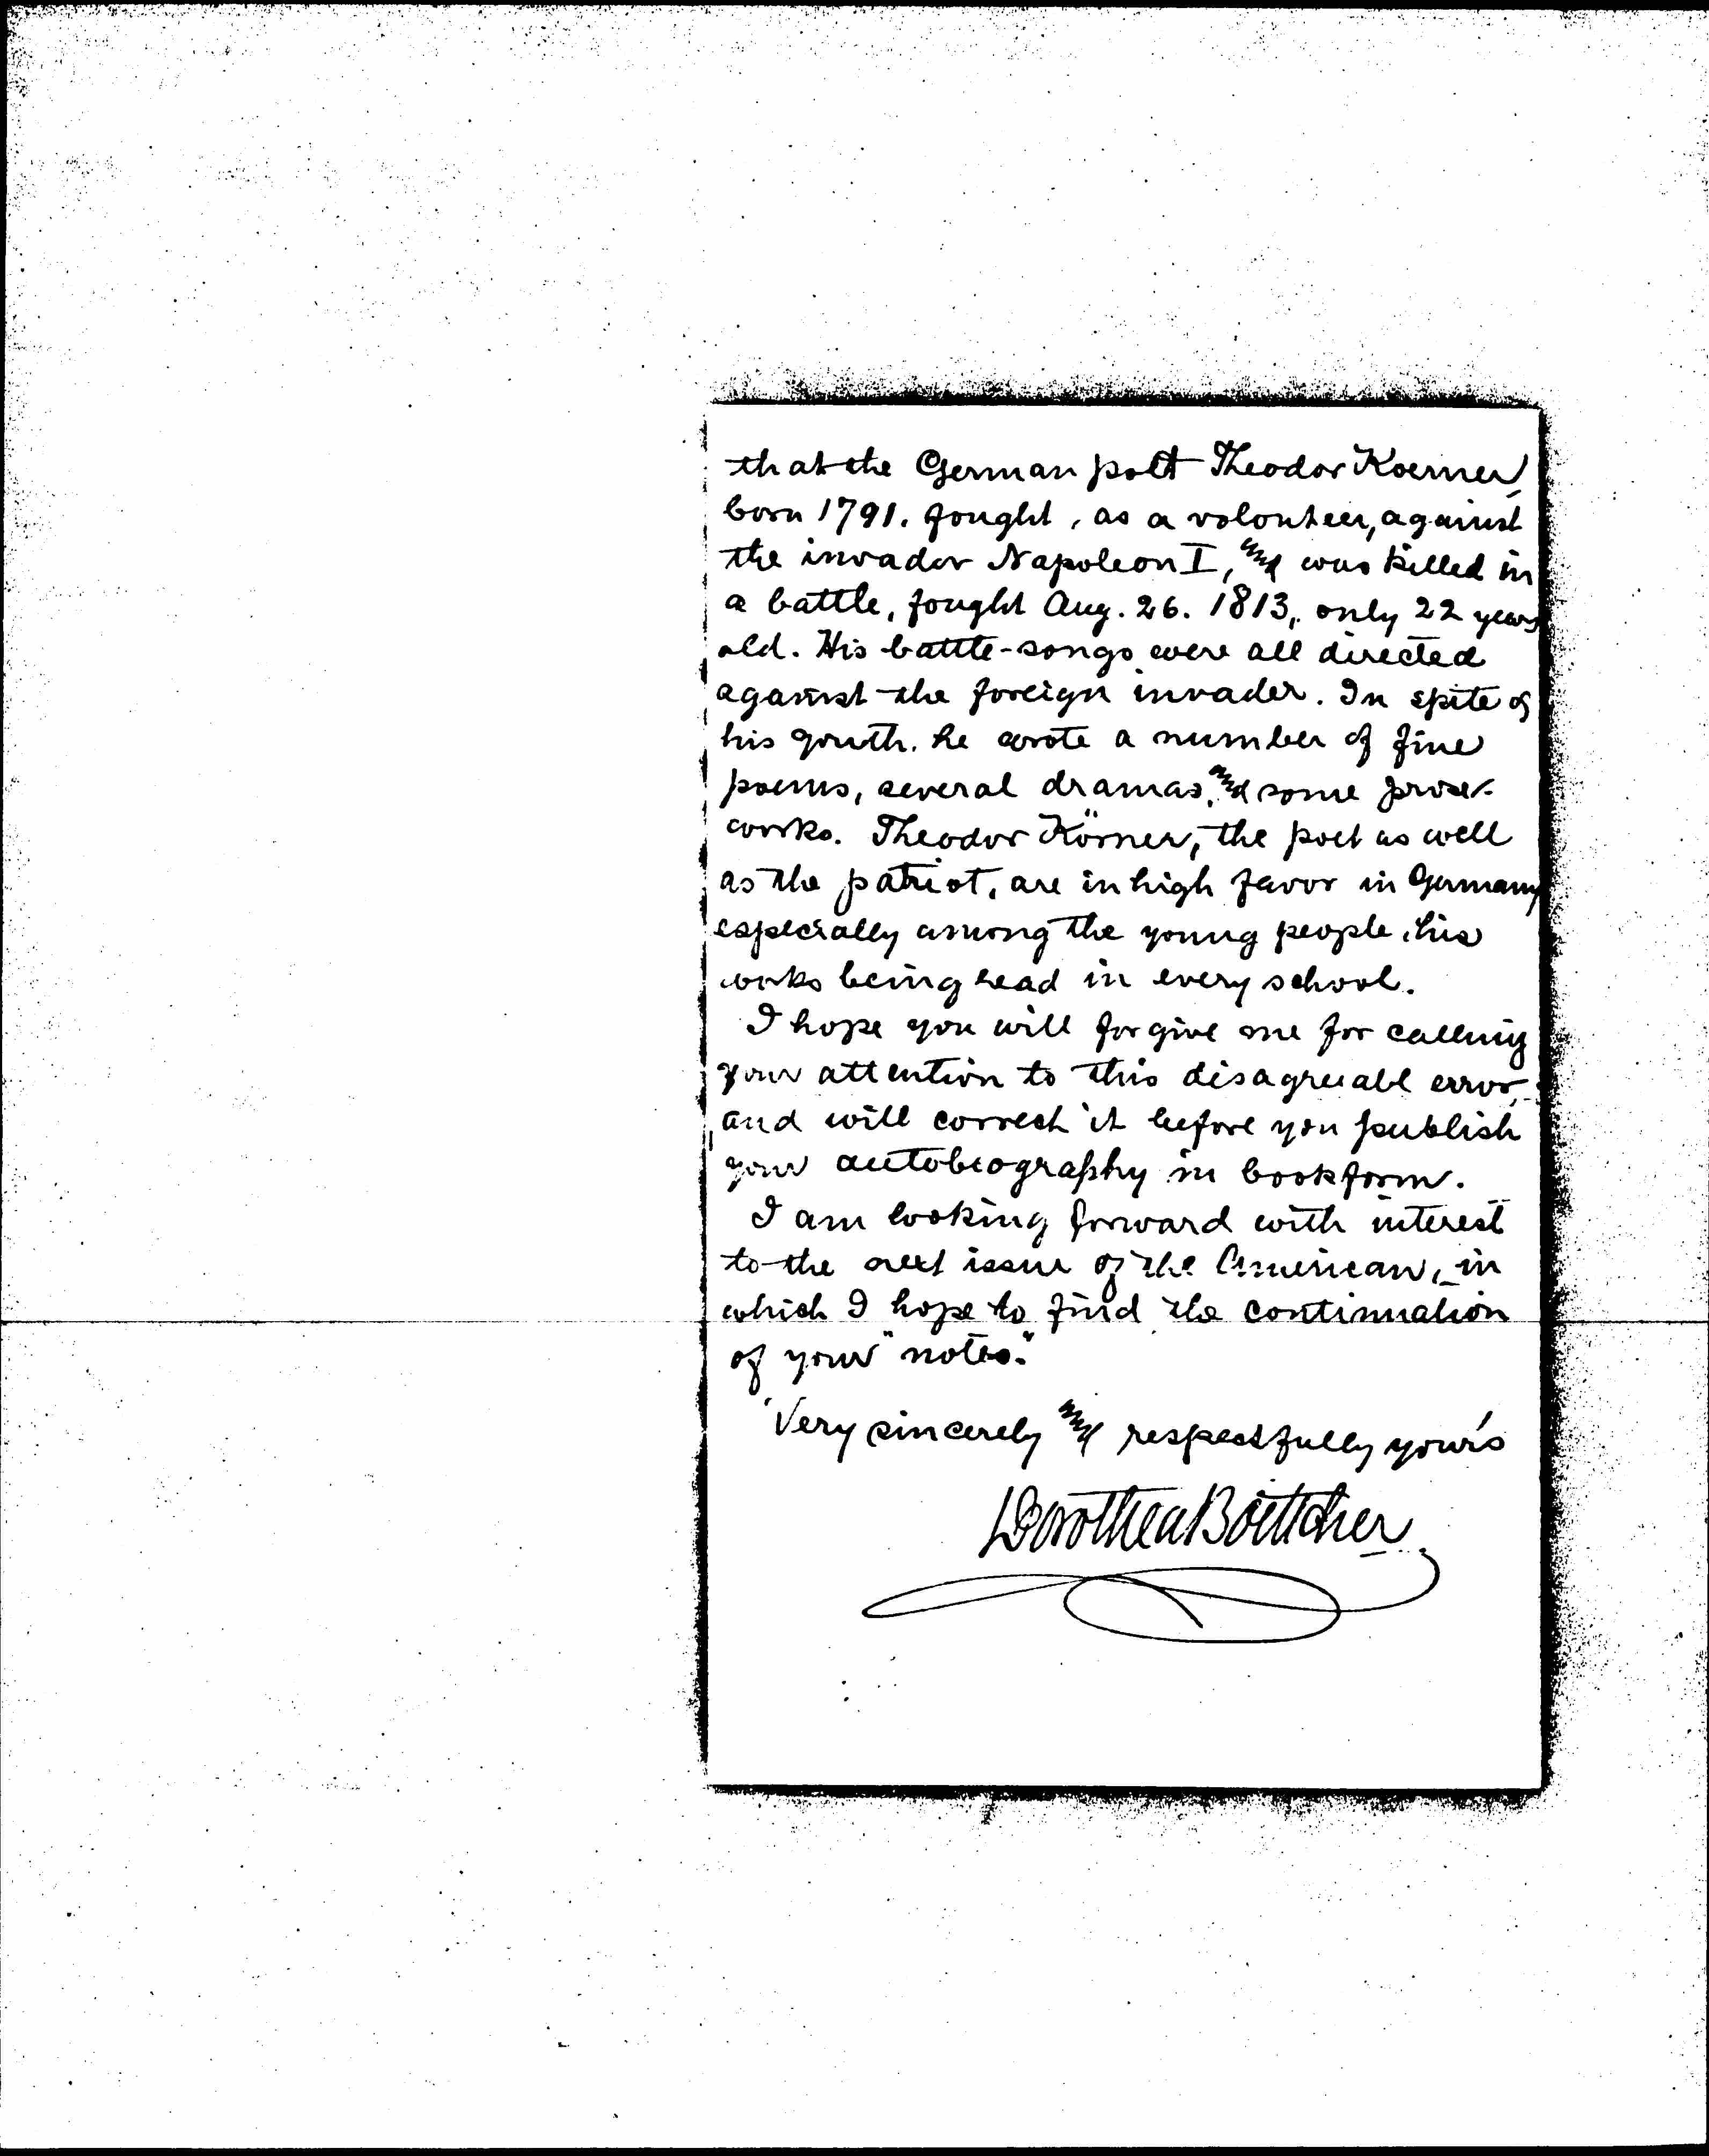 that the German poet Theodor Koerner,
born 1791. fought, as a volonteer, against
the invador Napoleon I, and was killed in
a battle, fought Aug. 26. 1813, only 22 years
old. His battle-songs were all directed
against the foreign invader. In spite of
his youth. he wrote a number of fine
poems, several dramas, and some prose-
works. Theodor Körner, the poet as well
as the patriot, are in high favor in Germany
especially among the young people, his
works being read in every school.
I hope you will forgive me for calling
your attention to this disagreeabl error,
and will correct it before you publish
your autobiography in bookform.
I am looking forward with interest
to the next issue of the American, in
which I hope to find the continuation
of your "notes."
Very sincerely and respectfully your's
Dorothea Böttcher